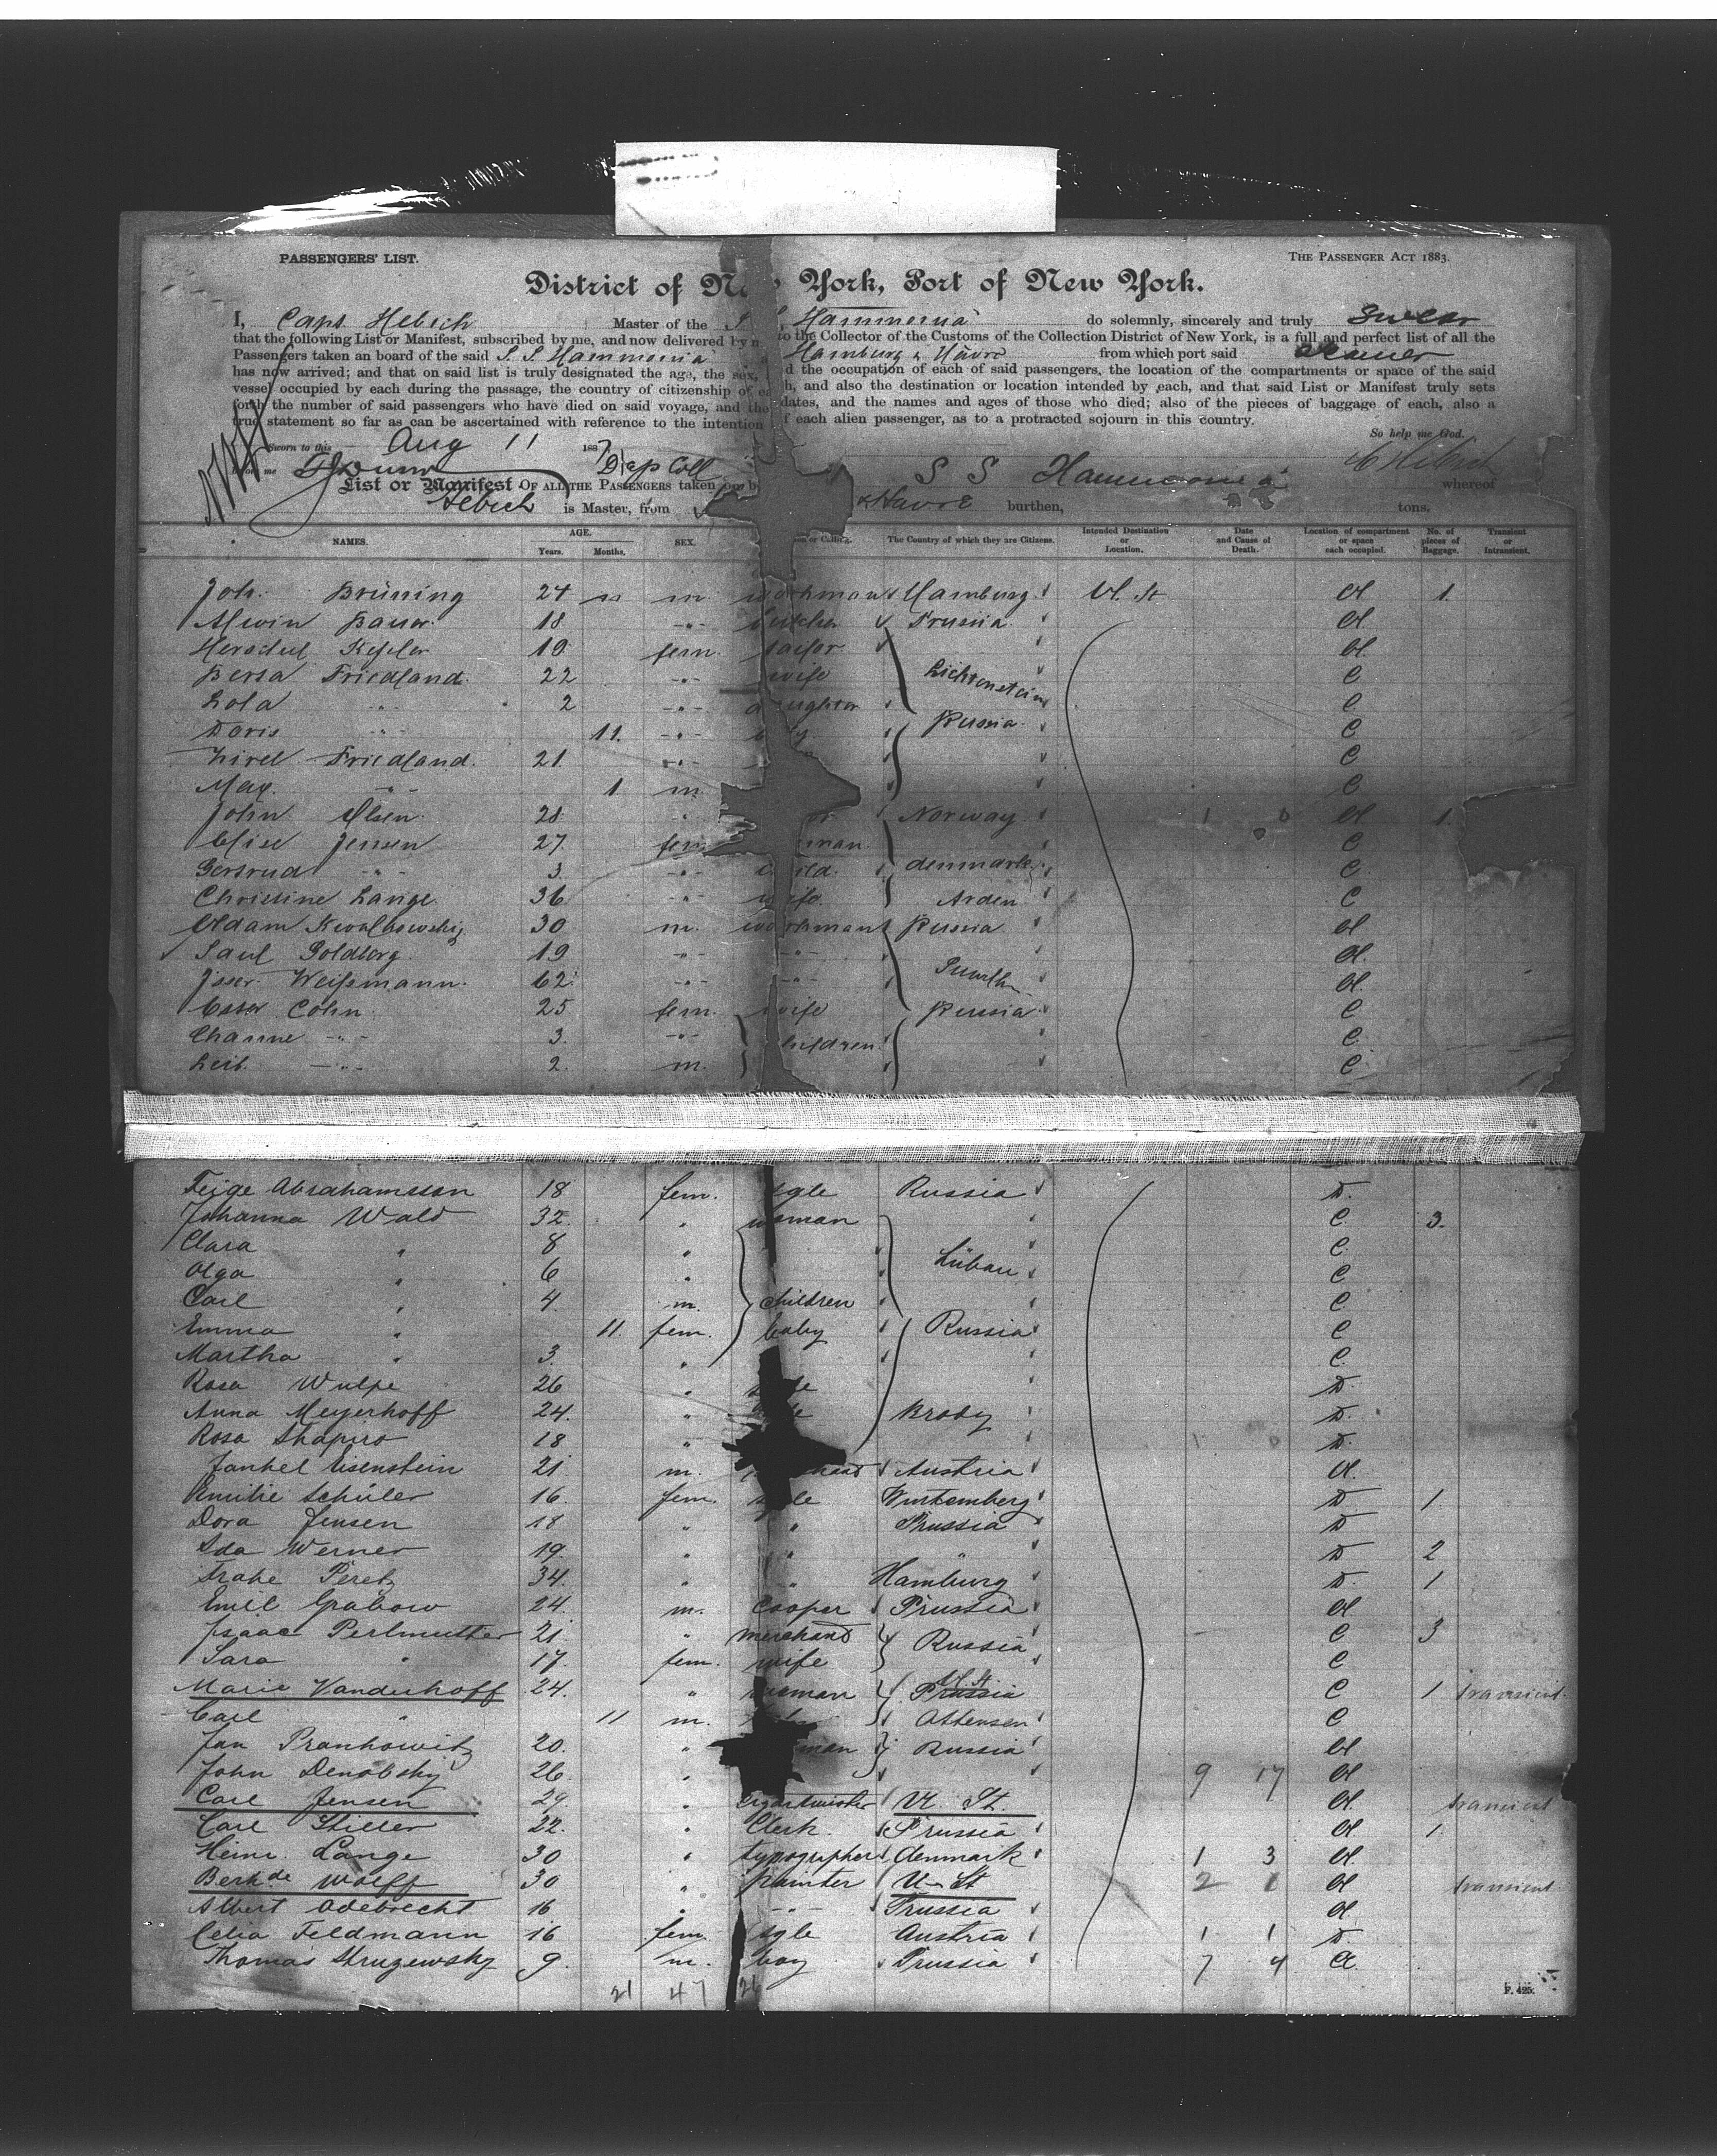 PASSENGERS' LIST.
THE PASSENGER ACT 1883.
District of New York, Port of New York.
I, Capt Hebich Master of the S. S. Hammonia do solemnly, sincerely and truly swear
that the following List or Manifest, subscribed by me, and now delivered by to the Collector of the Customs of the Collection District of New York, is a full and perfect list of all the
Passengers taken on board of the said S. S. Hammonia Hamburg & Havre from which port said steamer
has now arrived; and that on said list is truly designated the age, the sex, d the occupation of each of said passengers, the location of the compartments or space of the said
vessel occupied by each during the passage, the country of citizenship of ea h, and also the destination or location intended by each, and that said List or Manifest truly sets
forth the number of said passengers who have died on said voyage, and the dates, and the names and ages of those who died; also of the pieces of baggage of each, also a
true statement so far as can be ascertained with reference to the intention f each alien passenger, as to a protracted sojourn in this country.
So help me God.
Sworn to this Aug 11 1887
me Dep Coll C Hebich
List or Manifest OF ALL THE PASSENGERS taken on b S S Hammonia whereof
Hebich is Master, from & Havre burthen, tons.
NAMES. AGE. Years. Months. SEX. or Calling. The Country of which they are Citizens. Intended Destination or Location. Date and Cause of Death. Location of compartment or space each occupied. No. of pieces of Baggage. Transient or Intransient.
Joh. Brüning 24 m. workman Hamburg U. St 1.
Alwin Bauer 18 -"- butcher Prussia
Herschel Kessler 19 fem. tailor
Bersa Friedland 22 -"- wife Lichtenstein C
Lola -"- 2 -"- daughter C
Doris -"- 11. -"- Russia C
Zirel Friedland. 21. -"- C
Max. -"- 1 m. C
John Olsen 28 Norway 1.
Elise Jensen 27. fem man C
Gertrud -"- 3. -"- child. denmark C
Christine Lange 36 -"- wife Arden C
Adam Kwalkowski 30 m. workman Russia
Saul Goldberg. 19 -"- -"-
Isser Weissmann. 62. -"- -"-
Ester Cohn 25 fem. wife Russia C
Channe -"- 3. -"- children C
Leib. -"- 2. m. C
Feige Abrahamsson 18 fem. sgle Russia D.
Johanna Wald 32. " woman C 3.
Clara " 8 " C
Olga " 6 " Libau C
Carl " 4. m. children C
Emma " 11. fem. baby Russia C
Martha " 3. " C
Rosa Wulfe 26 " D.
Anna Meyerhoff 24. " Brody D.
Rosa Shapiro 18 " D.
Jankel Eisenstein 21 m. Austria
Emilie Schüler 16. fem. sgle Wurtemberg D 1
Dora Jensen 18 " " Prussia D
Ida Werner 19. " " " D 2
Peretz 34. " " Hamburg D. 1
Emil Grabow 24. m. Cooper Prussia
Isaac Perlmutter 21. " merchand Russia C 3
Sara " 17. fem. wife C
Marie Vanderhoff 24. " woman Prussia U. St C 1 transient
Carl " 11 m. Ottensen C
Jan Prankowitz 20. " man Russia
John Denobsky 26. " 9 17
Carl Jensen 29. " U. St. transient
Carl Stieler 22. " Clerk. Prussia 1
Heinr. Lange 30 " typographer denmark 1 3
Bernhde Wolff 30 " painter U. St 2 1 transient
Albert Odebrecht 16 " -"- Prussia
Celia Feldmann 16 fem. sgle Austria 1 1 D.
Thomas Struzewsky 9. m. boy Prussia 7 4
21 47 26
F. 425.